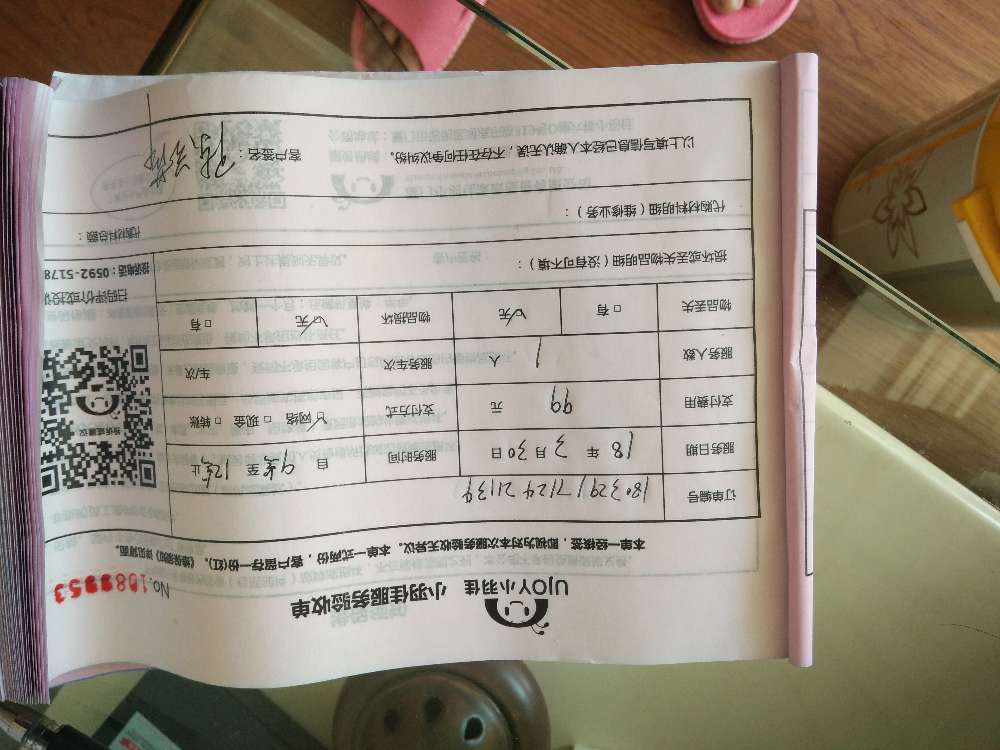 UJOY小羽佳 小羽佳服务验收单
本单一经核签，即视为对本次服务验收无异议。本单一式两份，客户留存一份(红)。《维保细则》详见背面。
订单编号
服务日期 18 年 3 月 30 日 服务时间 自 9点 至 12点 止
支付费用 99 元 支付方式 ☑网络 □现金 □转账
服务人数 1 人 服务车次 车/次
物品丢失 □有 ☑无 物品损坏 ☑无 □有
损坏或丢失物品明细（没有可不填）：
扫码评价或投诉
投诉电话：0592-5178
代购材料明细（维修业务）：
代购材料总额：
以上填写信息已经本人确认无误，不存在任何争议纠纷。 客户签名：